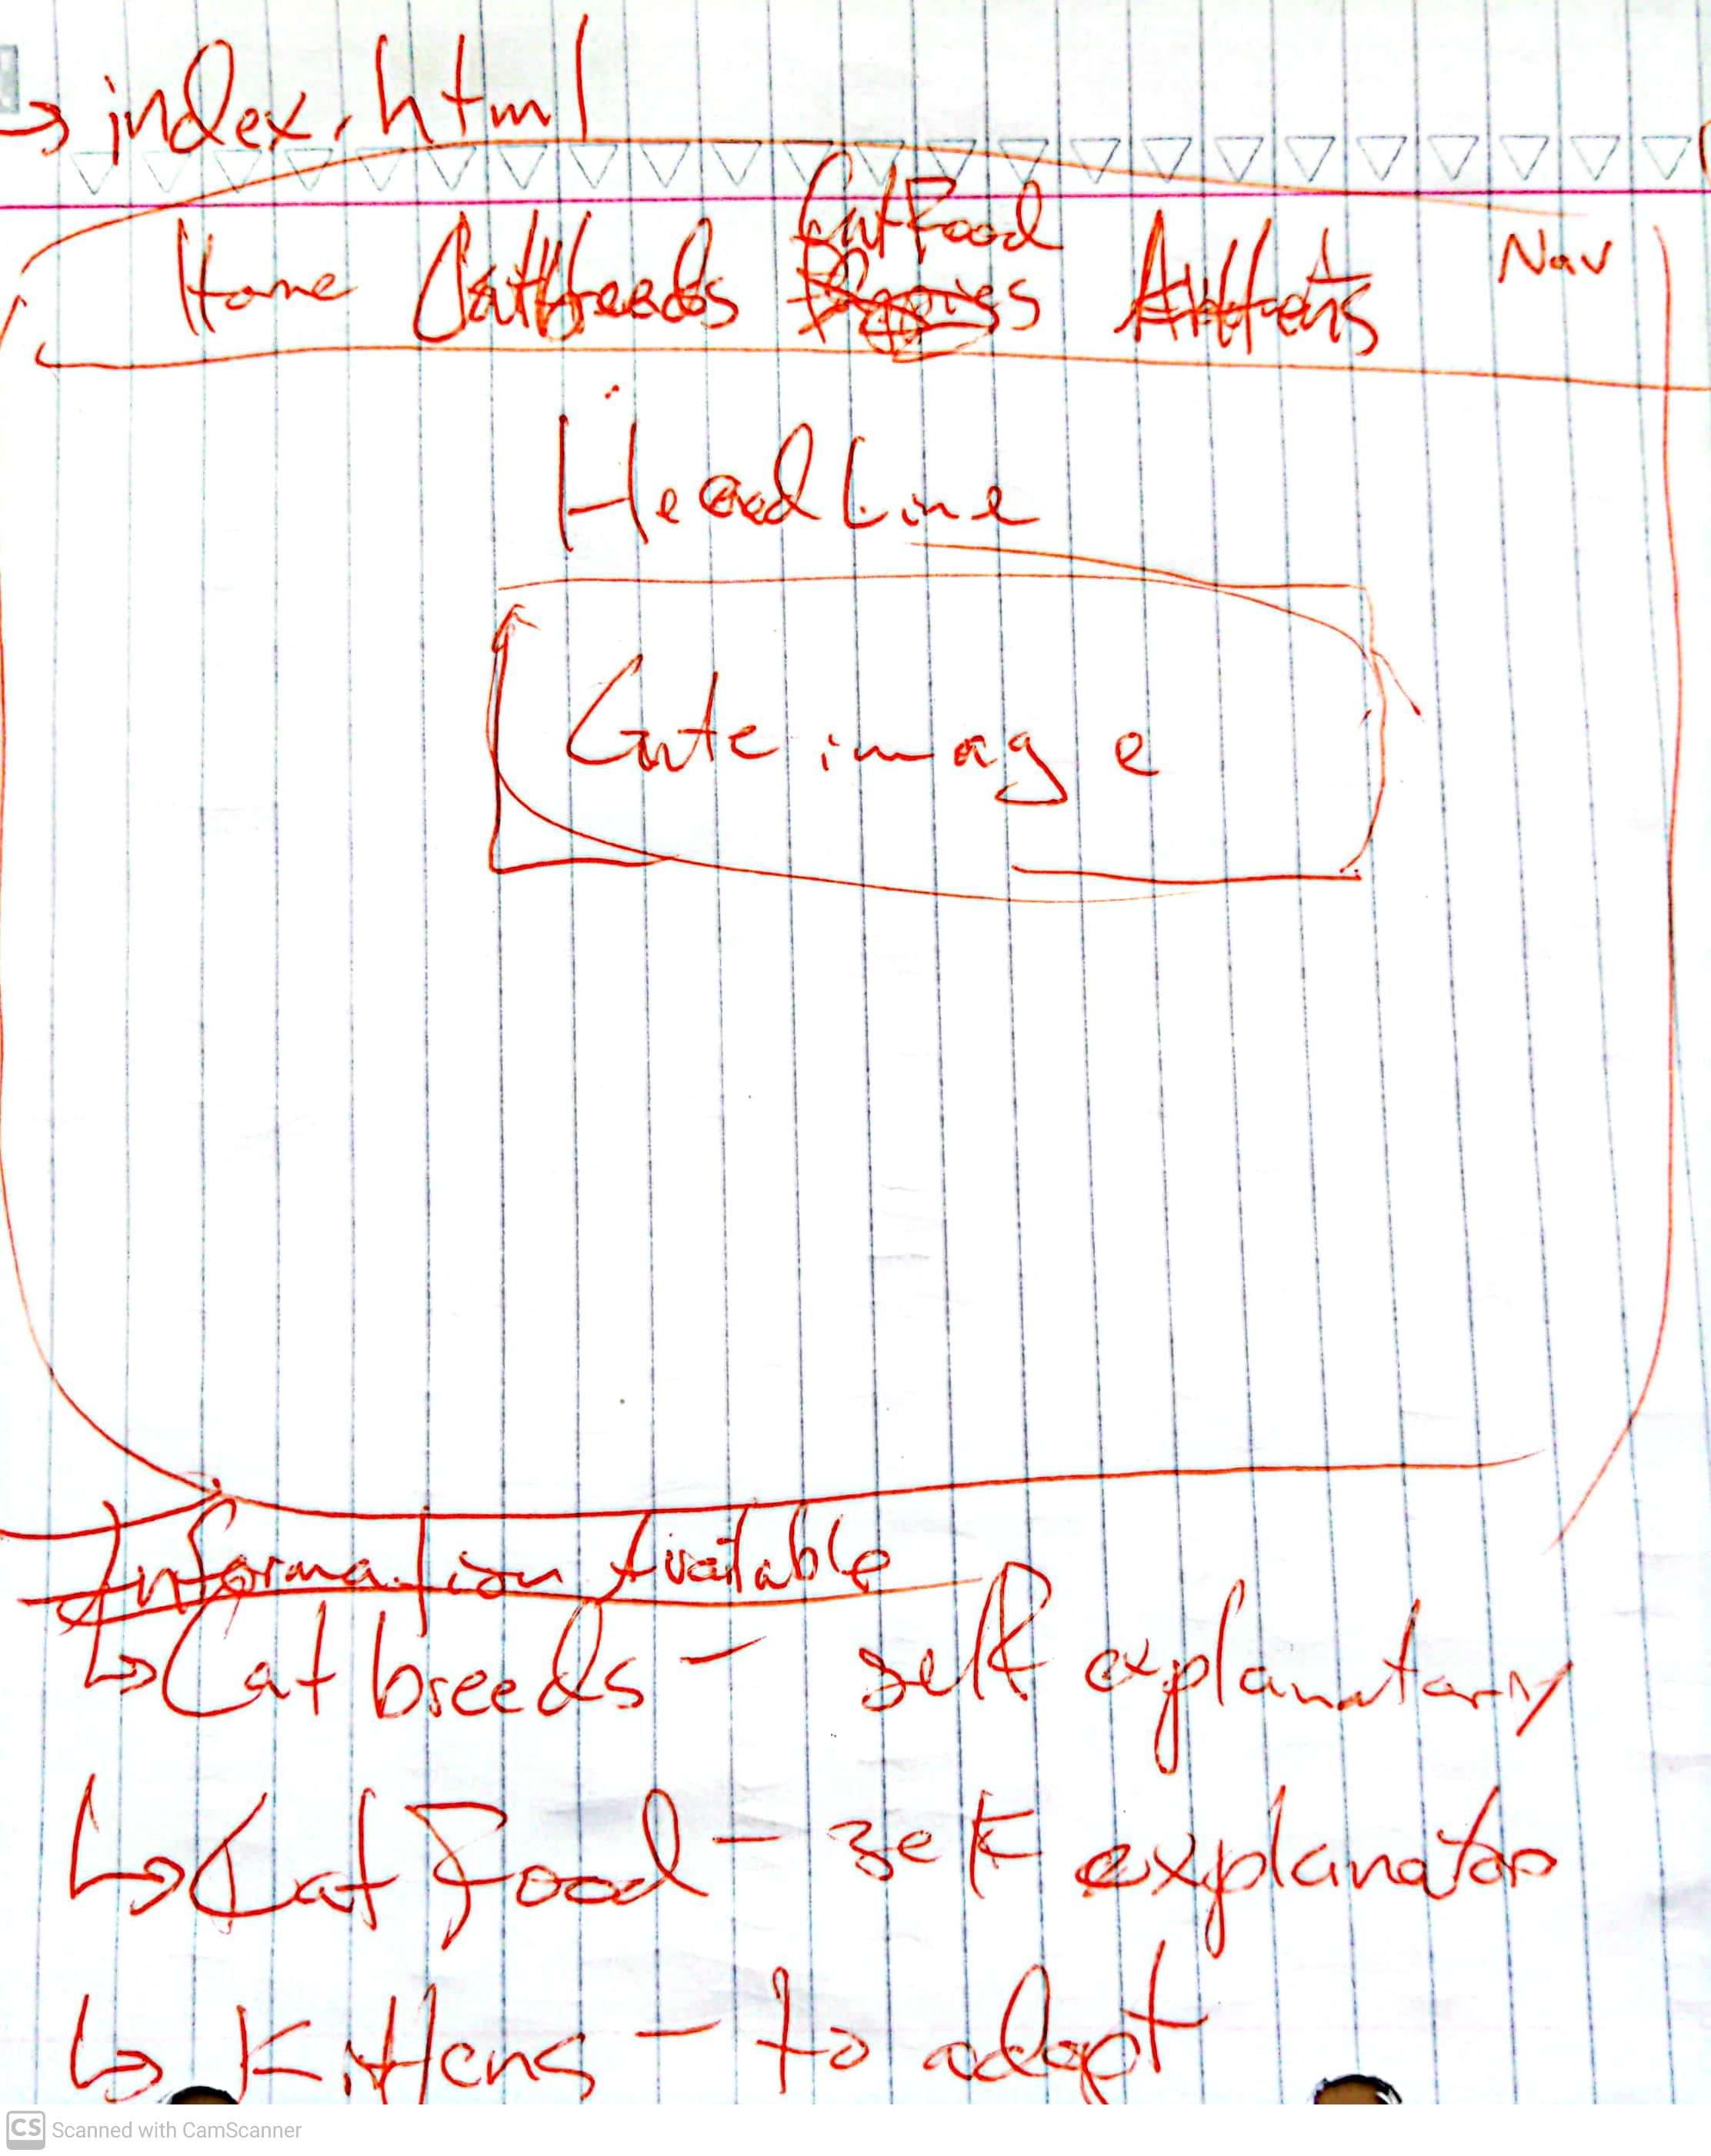 → index.html
Cat Food
Home Catbreeds Kittens Nav
HeadLine
Cute image
Information Available
↳ Cat breeds - self explanatory
↳ Cat Food - self explanator
↳ Kittens - to adopt
CS Scanned with CamScanner